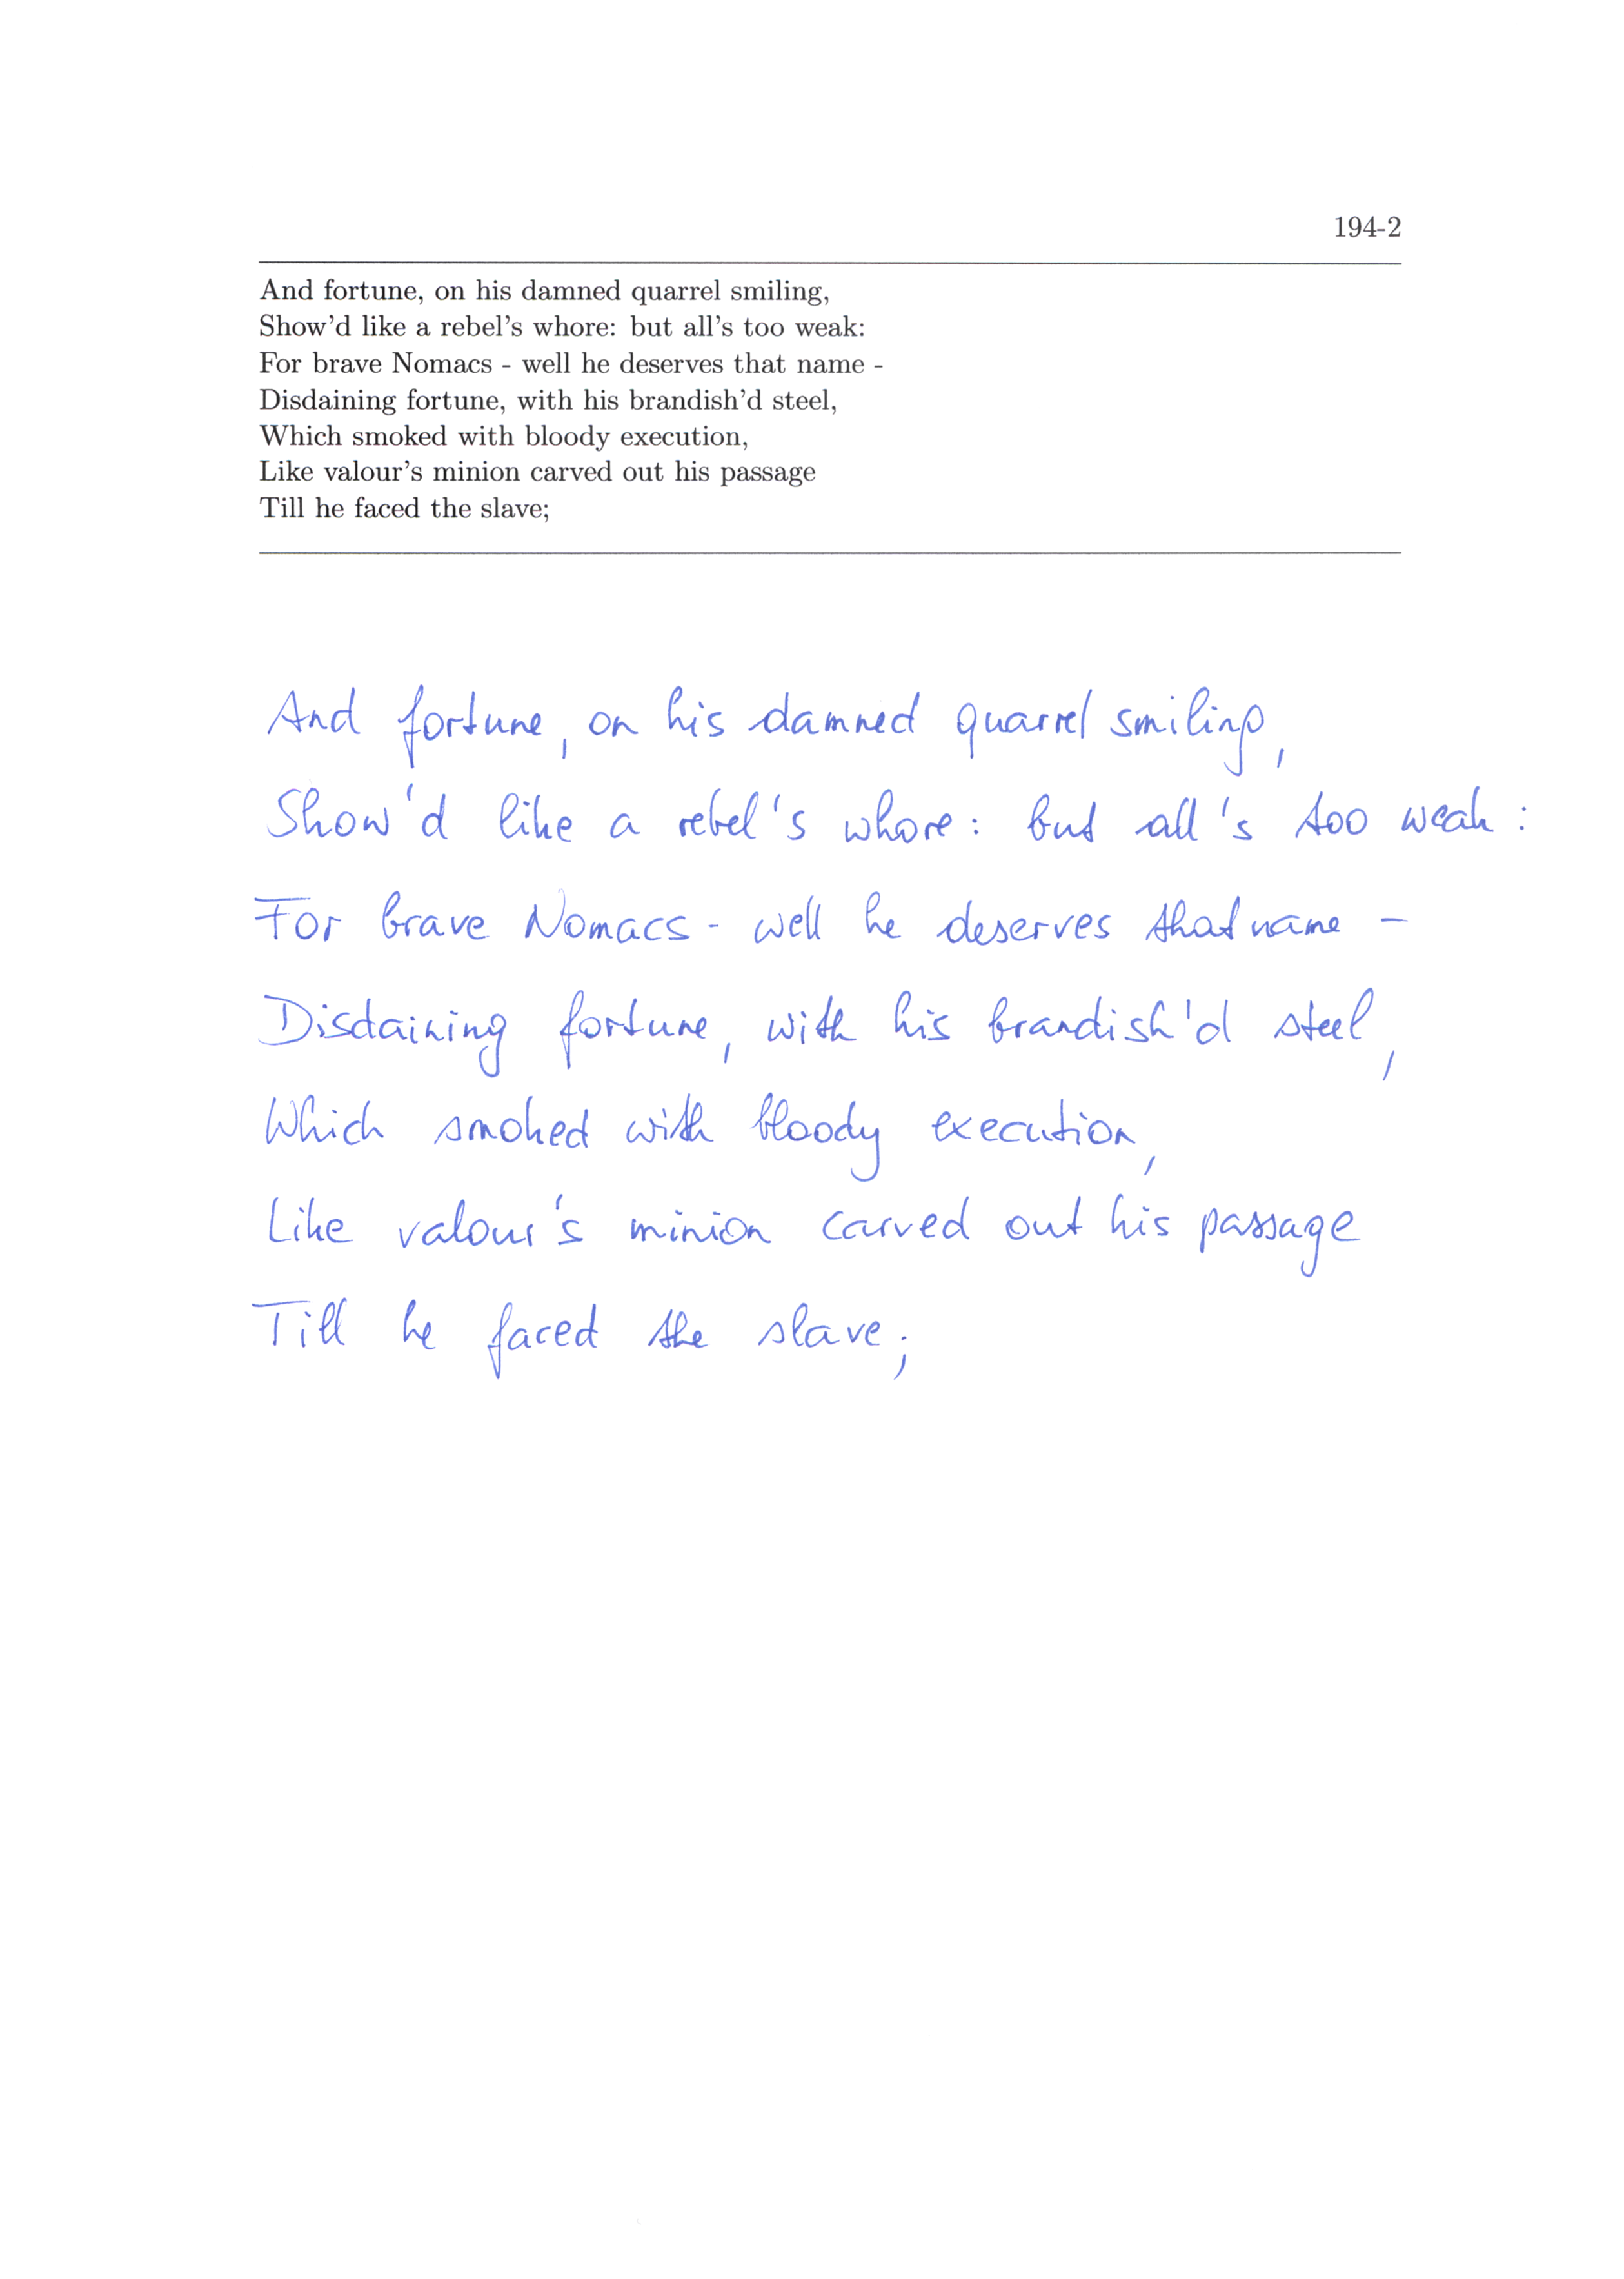 194-2
And fortune, on his damned quarrel smiling,
Show'd like a rebel's whore: but all's too weak:
For brave Nomacs - well he deserves that name -
Disdaining fortune, with his brandish'd steel,
Which smoked with bloody execution,
Like valour's minion carved out his passage
Till he faced the slave;
And fortune, on his damned quarrel smiling,
Show'd like a rebel's whore: but all's too weak:
For brave Nomacs - well he deserves that name -
Disdaining fortune, with his brandish'd steel,
Which smoked with bloody execution,
Like valour's minion carved out his passage
Till he faced the slave;